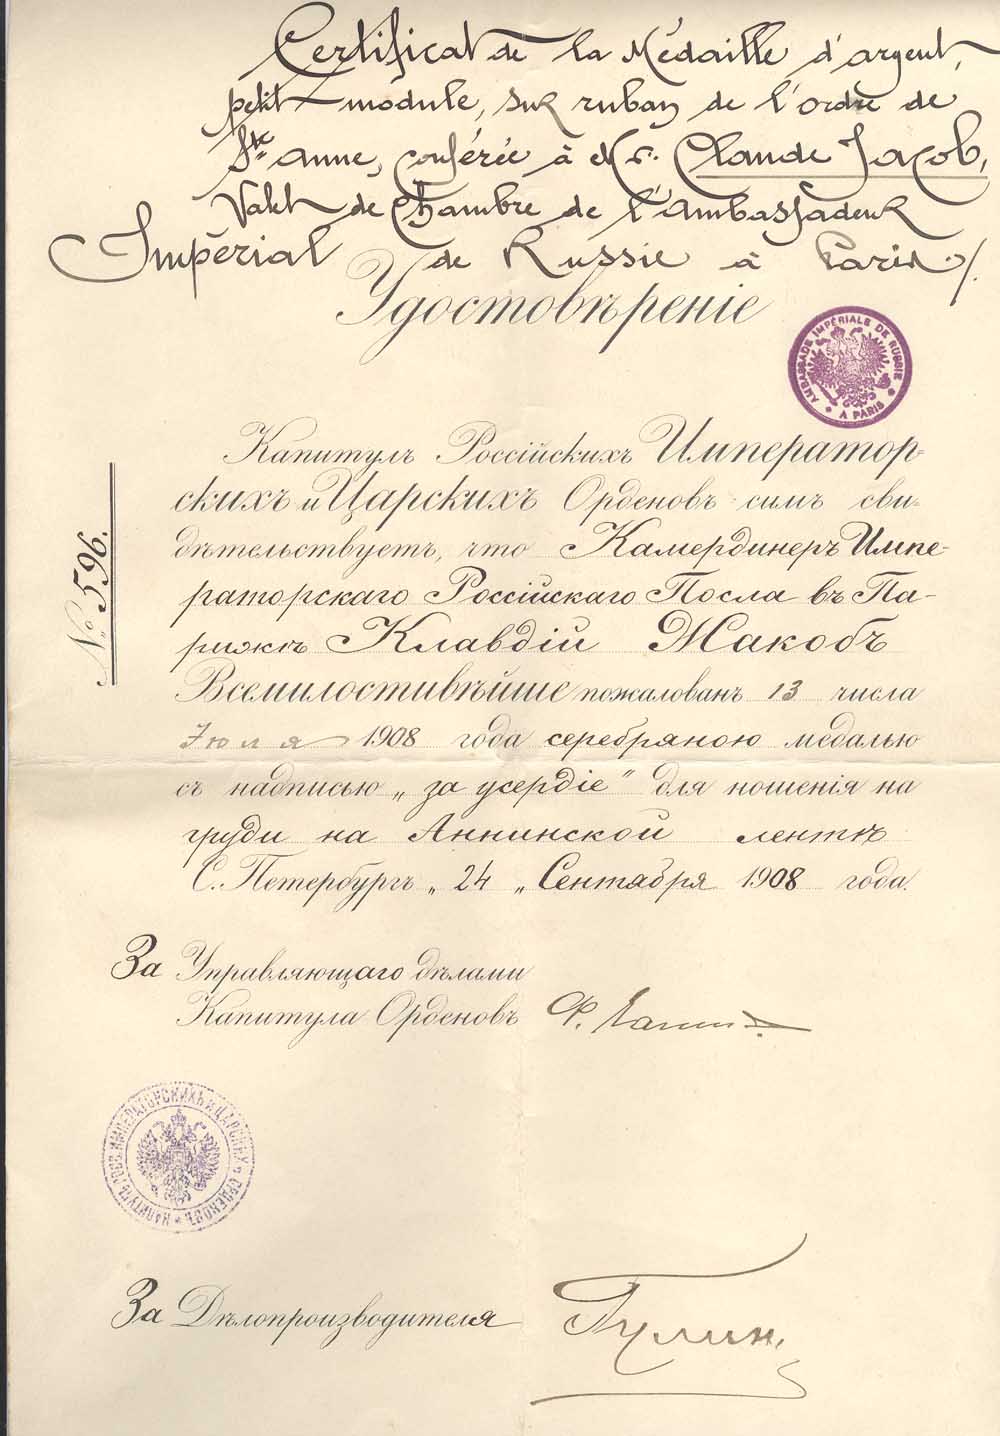 Certificat de la Médaille d'argent,
petit module, sur ruban de l'ordre de
Ste Anne, conférée à Mr. Claude Jacob,
Valet de Chambre de l'Ambassadeur
Impérial de Russie à Paris ./.
Удостовѣреніе
AMBASSADE IMPÉRIALE DE RUSSIE
A PARIS
Капитулъ Россійскихъ Император-
скихъ и Царскихъ Орденовъ симъ сви-
дѣтельствуетъ, что Камердинеръ Импе-
раторскаго Россійскаго Посла въ Па-
рижѣ Клавдій Жакобъ
Всемилостивѣйше пожалованъ 13 числа
Іюля 1908 года серебряною медалью
съ надписью „за усердіе" для ношенія на
груди на Аннинской лентѣ
С. Петербургъ „ 24 „ Сентября 1908 года.
№ 596.
За Управляющаго дѣлами
Капитула Орденовъ Ф.
КАПИТУЛЪ РОСС. ИМПЕРАТОРСКИХЪ И ЦАРСКИХЪ ОРДЕНОВЪ
За Дѣлопроизводителя Гулин.